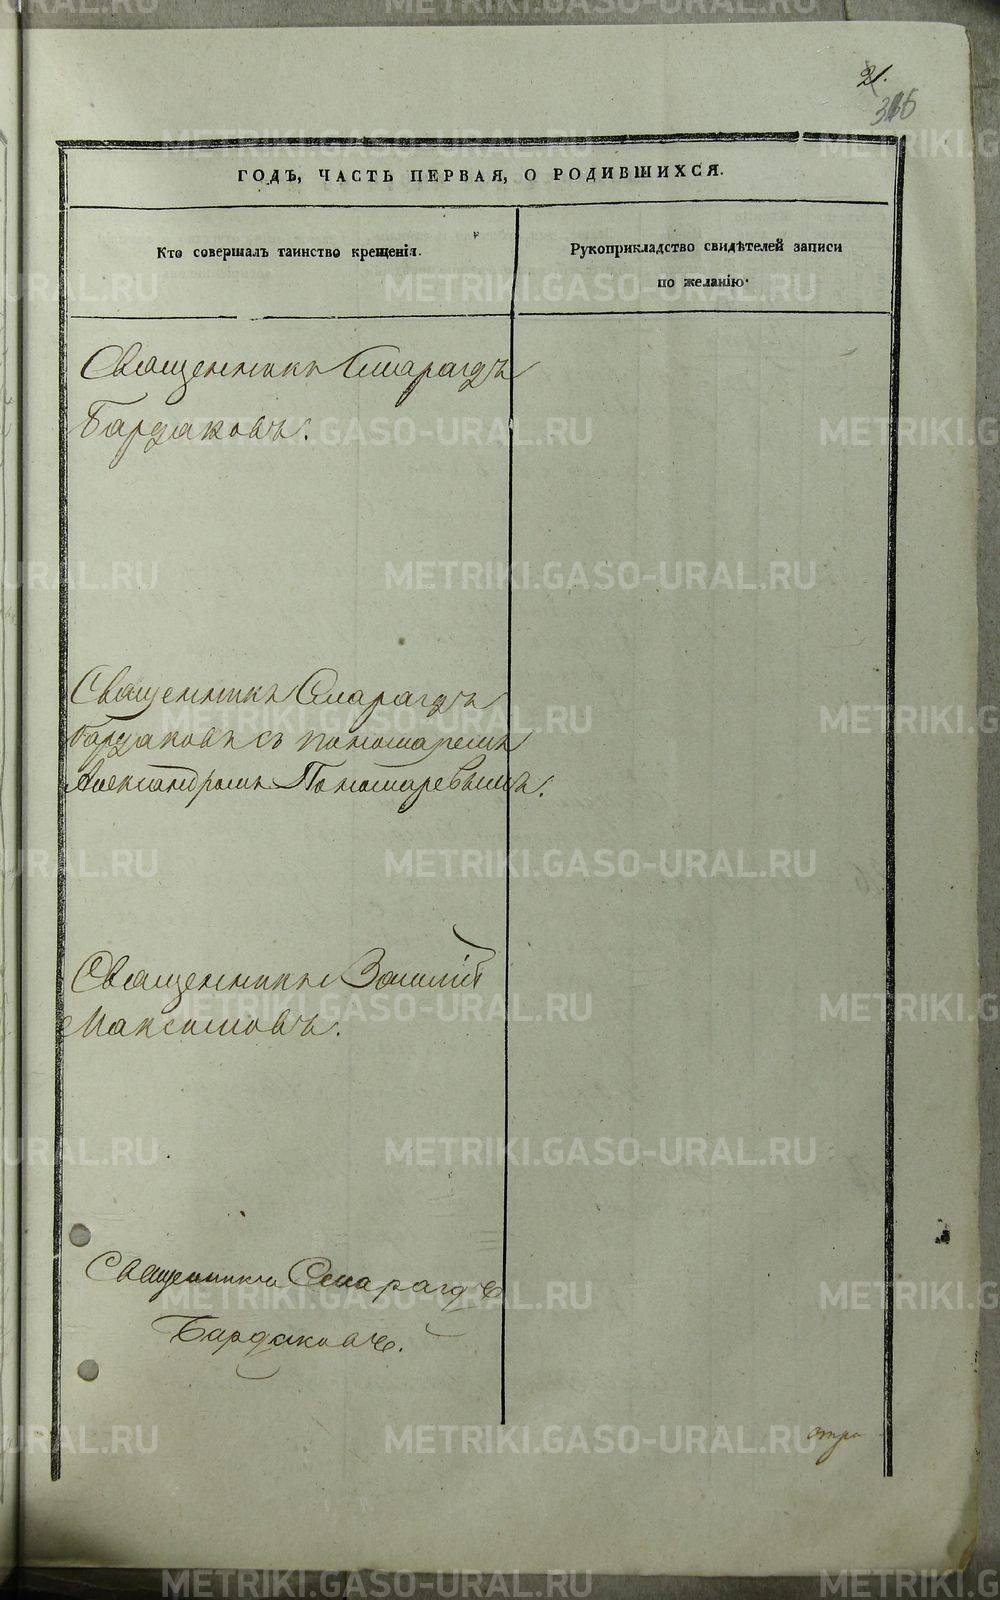 21.
ГОДЪ, ЧАСТЬ ПЕРВАЯ, О РОДИВШИХСЯ.
Кто совершалъ таинство крещенія.
Рукоприкладство свидѣтелей записи
по желанію.
Священникъ Смарагдъ
Бардаковъ.
Священникъ Смарагдъ
Бардаковъ съ пономаремъ
Александромъ Пономаревымъ.
Священникъ Василій
Максимовъ.
Священникъ Смарагдъ
Бардаковъ.
METRIKI.GASO-URAL.RU